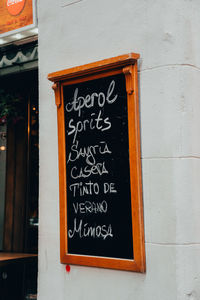 Aperol
sprits
Sangria
Casera
TINTO DE
VERANO
Mimosa